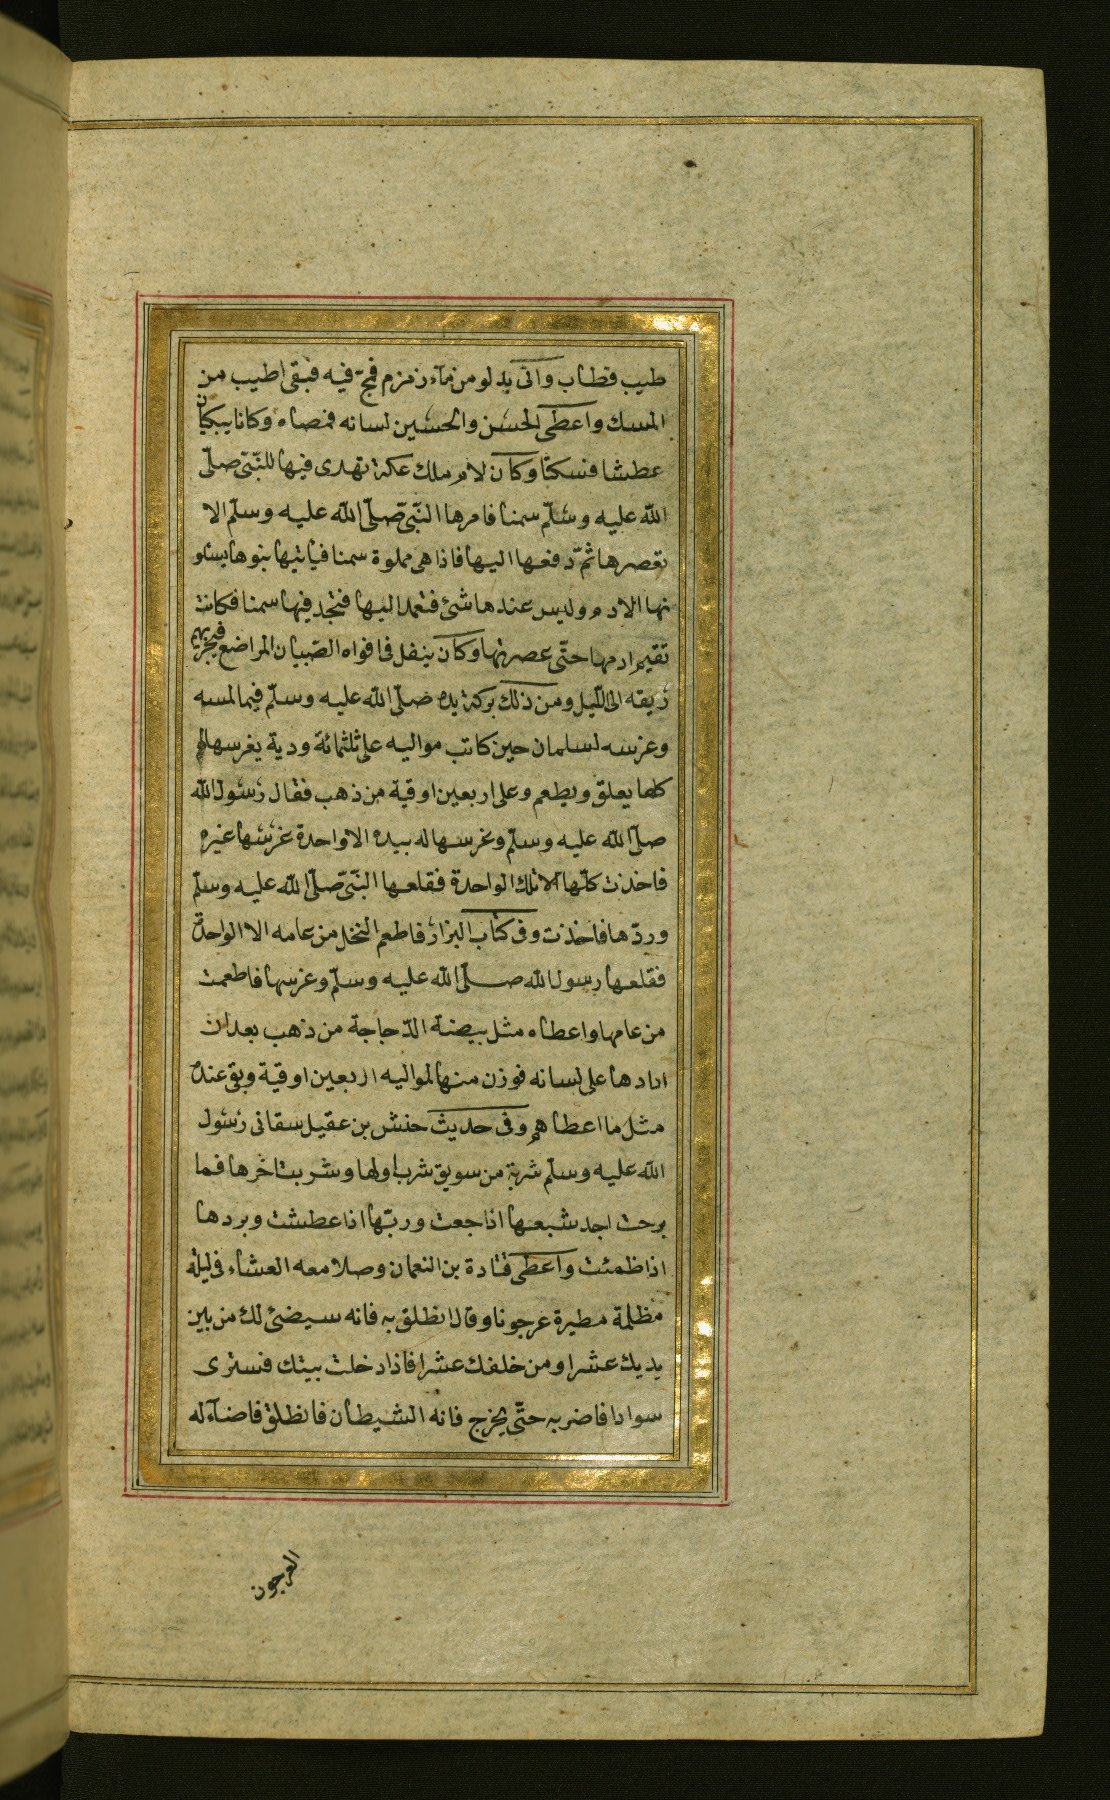 طيب فطاب واتى بدلو من مآء زمزم فمجّ فيه فبقى اطيب من
المسك واعطى الحسن والحسين لسانه فمصاه وكانا يبكيان
عطشا فسكتا وكان لام ملك عكة تهدى فيها للنّبىّ صلّى
الله عليه وسلّم سمنا فامرها النّبىّ صلّى الله عليه وسلّم الا
تعصرها ثمّ دفعها اليها فاذا هى مملوة سمنا فياتيها بنوها يسئلو
نها الادم وليس عندها شئ فتعمد اليها فتجد فيها سمنا فكانت
تقيم ادمها حتّى عصرتها وكان يتفل فى افواه الصّبيان المراضع فيجزيهم
ريقه الى اللّيل ومن ذلك بركة يده صلّى الله عليه وسلّم فيما لمسه
وغرسه لسلمان حين كاتب مواليه على ثلثمائة ودية يغرسها لهم
كلها يعلق ويطعم وعلى اربعين اوقية من ذهب فقال رسول الله
صلّى الله عليه وسلّم وغرسها له بيده الا واحدة غرسها غيره
فاخذت كلّها الا تلك الواحدة فقلعها النّبىّ صلّى الله عليه وسلّم
وردّها فاخذت وفى كتاب البزار فاطعم النخل من عامه الا الواحدة
فقلعها رسول الله صلّى الله عليه وسلّم وغرسها فاطعمت
من عامها واعطاه مثل بيضة الدّجاجة من ذهب بعد ان
ادارها على لسانه فوزن منها لمواليه اربعين اوقية وبقى عنده
مثل ما اعطاهم وفى حديث حنش بن عقيل سقانى رسول
الله عليه وسلّم شربة من سويق شرب اولها وشربت اخرها فما
برحت اجد شبعها اذا جعت وريّها اذا عطشت وبردها
اذا ظمئت واعطى قتادة بن النعمان وصلا معه العشاء فى ليلة
مظلمة مطيرة عرجونا وقال انطلق به فانه سيضئ لك من بين
يديك عشرا ومن خلفك عشرا فاذا دخلت بيتك فسترى
سوادا فاضربه حتّى يخرج فانه الشيطان فانطلق فاضآء له
العرجون